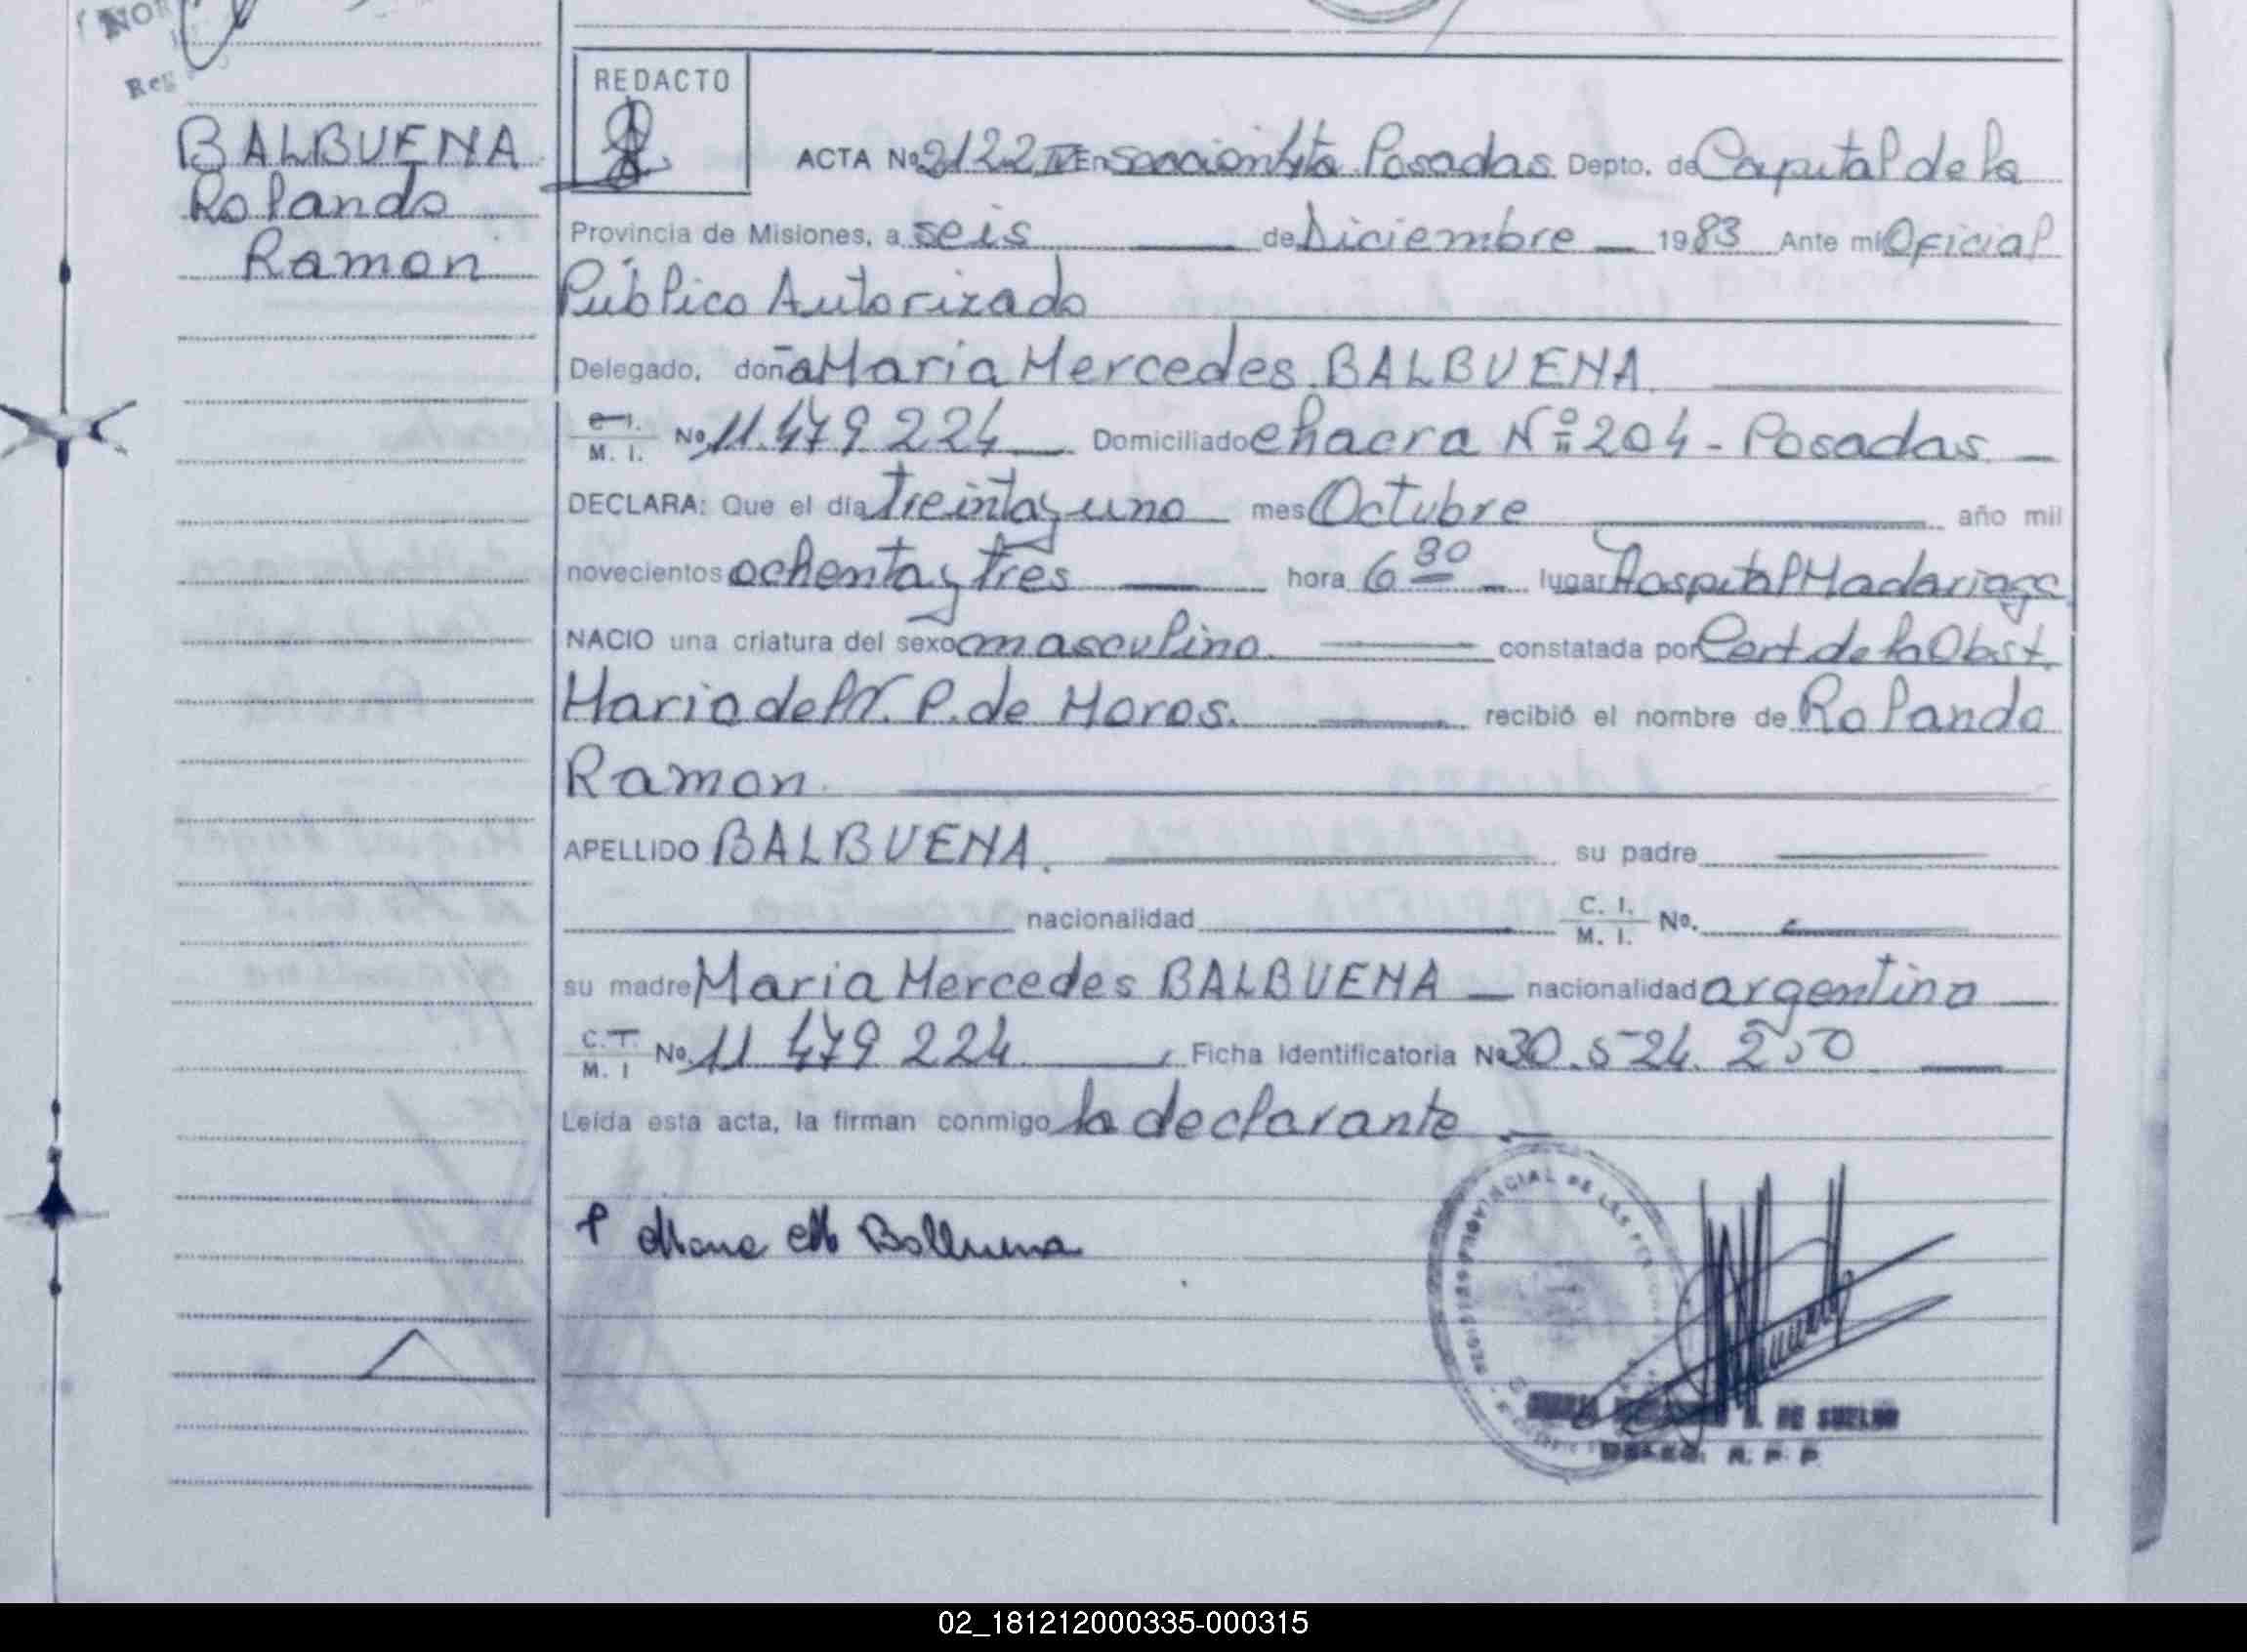 BALBUENA
Rolando
Ramon
REDACTO
ACTA Nº 2122 IV En seccion 4ta Posadas Depto. de Capital de la
Provincia de Misiones, a seis de Diciembre 1983 Ante mi Oficial
Público Autorizado
Delegado, doña Maria Mercedes BALBUENA
C. I. M. I. Nº 11.479 224 Domiciliado chacra Nº 204 - Posadas
DECLARA: Que el día treinta y uno mes Octubre año mil
novecientos ochenta y tres hora 6 30 lugar Hospital Madariaga
NACIO una criatura del sexo masculino constatada por Cert. de la Obst.
Maria del P. de Moros. recibió el nombre de Rolando
Ramon
APELLIDO BALBUENA. su padre
nacionalidad C. I. M. I. Nº.
su madre Maria Mercedes BALBUENA nacionalidad argentina
C. I. M. I Nº 11 479 224 Ficha Identificatoria Nº 30.524.250
Leída esta acta, la firman conmigo la declarante
Maria M Balbuena
PROVINCIAL DE LAS PERSONAS
DE SUELDO
DELEG. R. P. P.
02_181212000335-000315